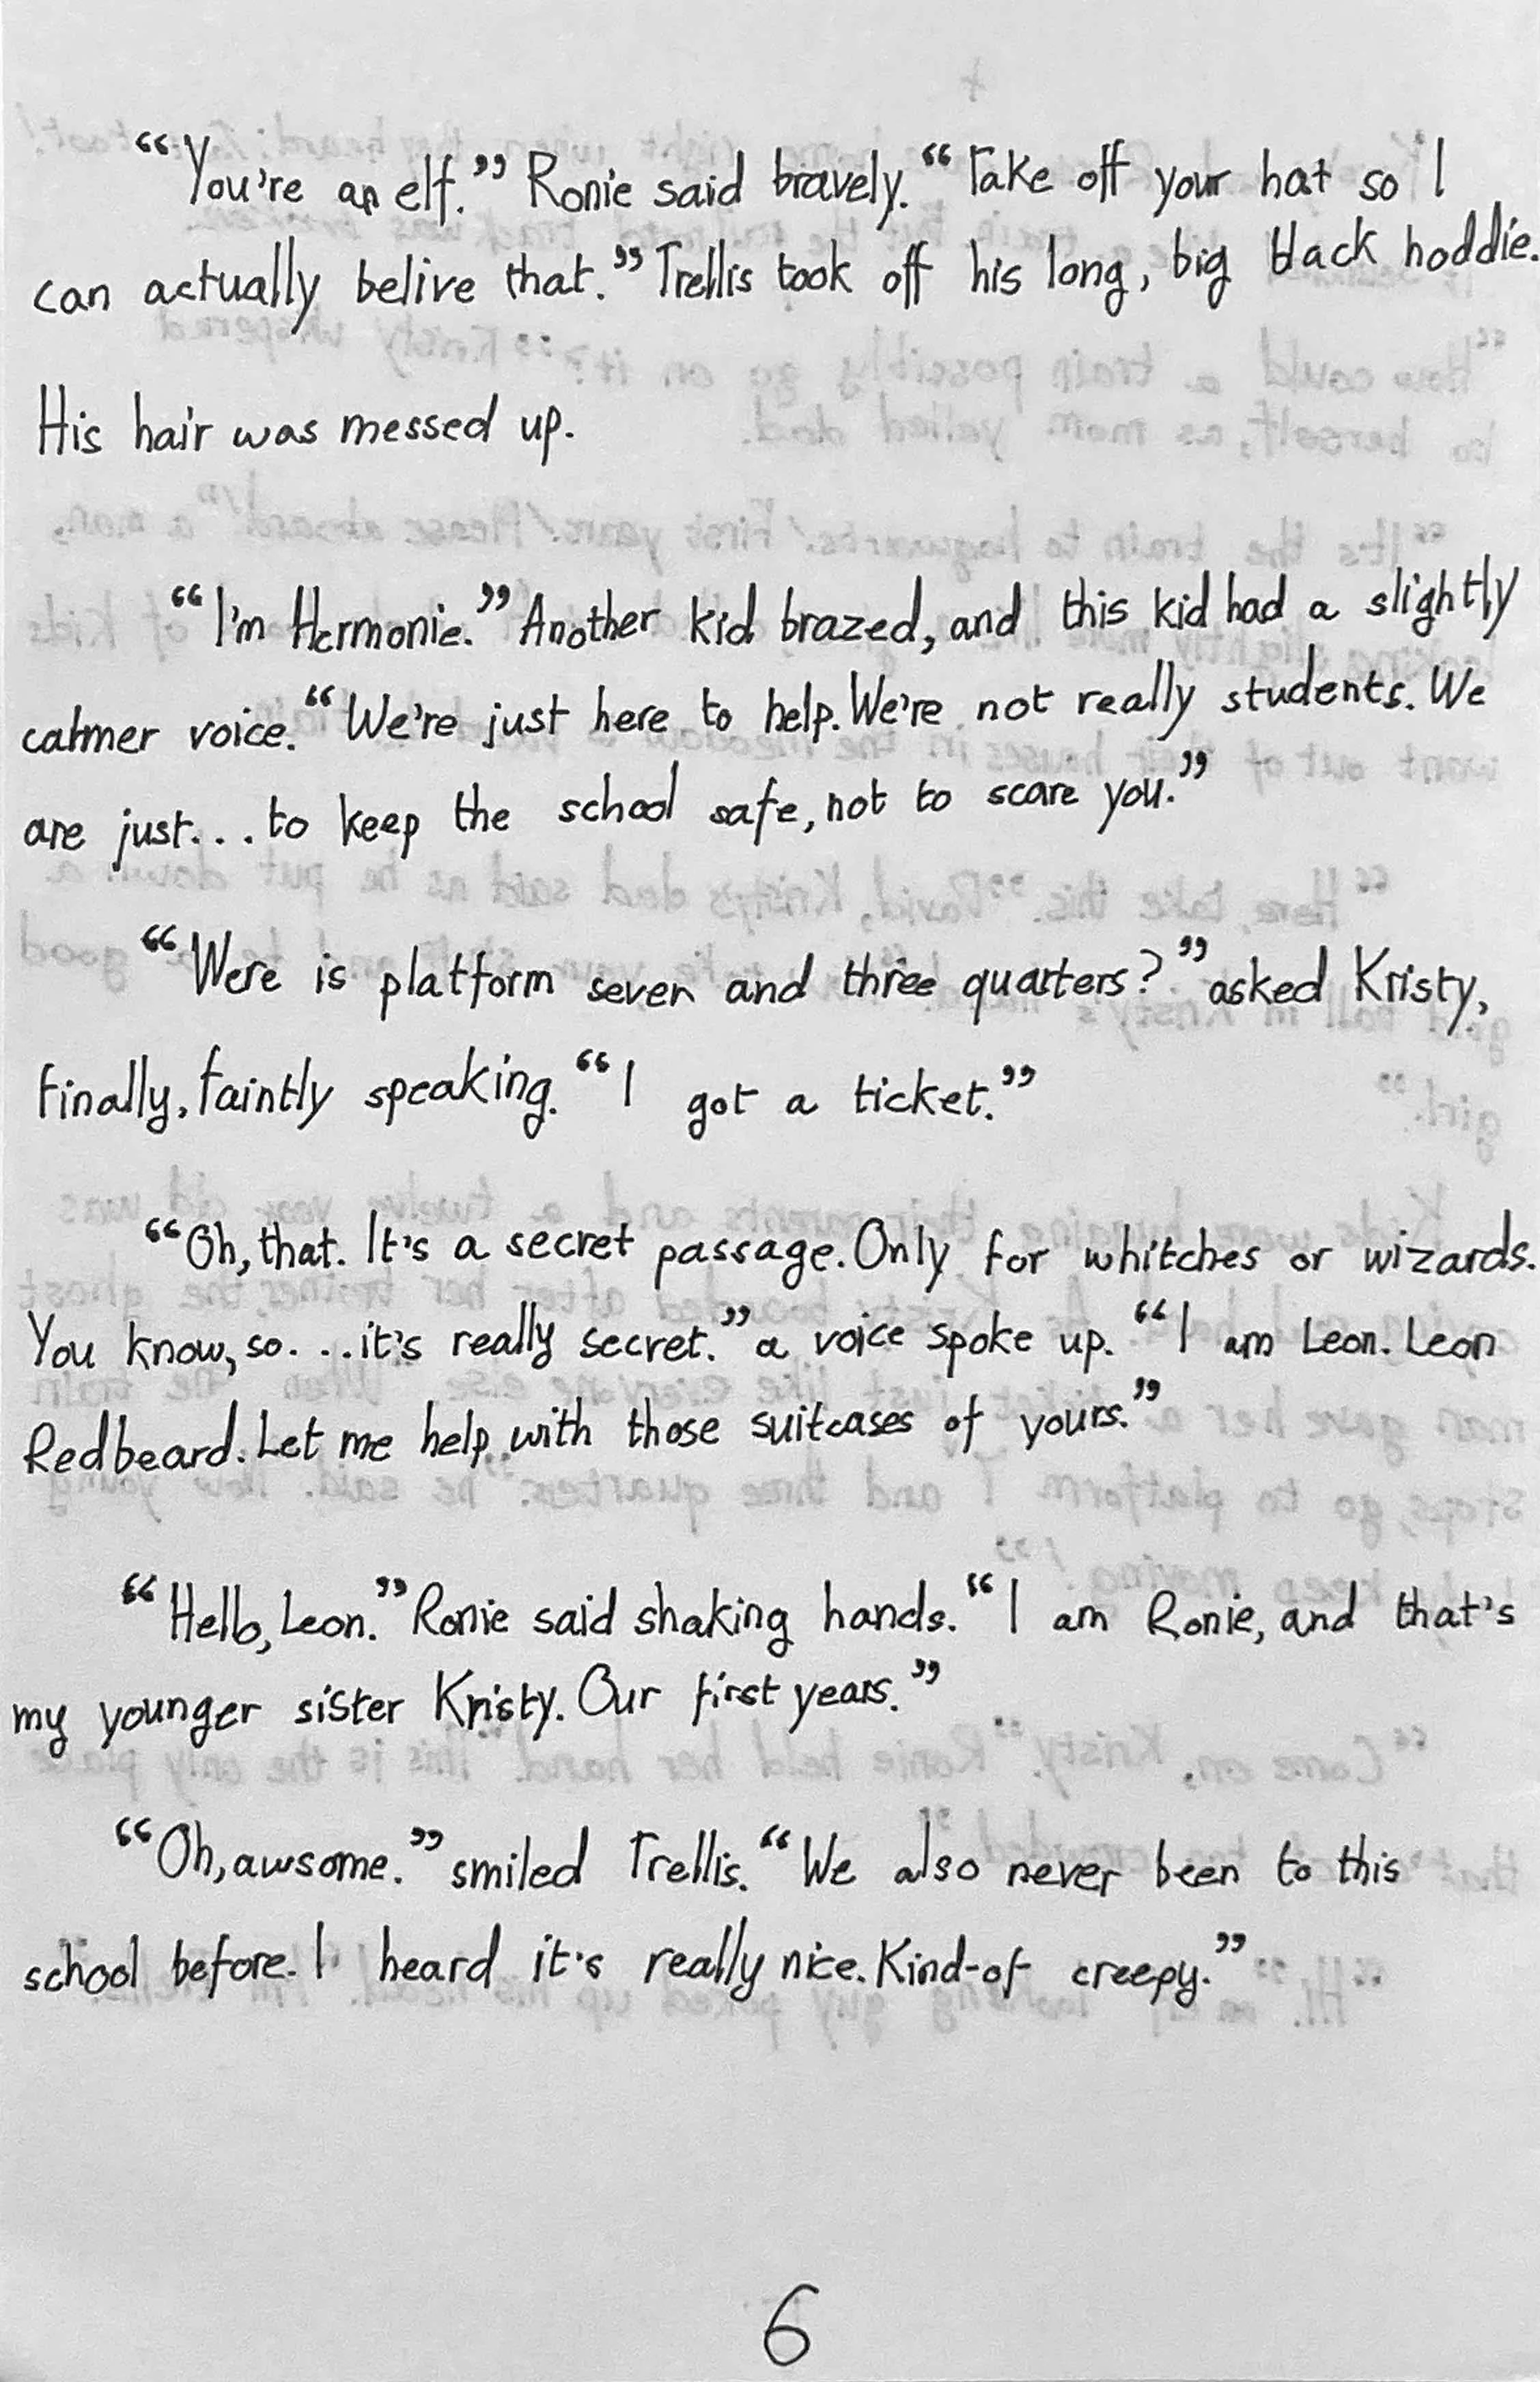 “You're an elf.” Ronie said bravely. “Take off your hat so I
can actually belive that.” Trellis took off his long, big black hoddie.
His hair was messed up.
“I'm Hermonie.” Another kid brazed, and this kid had a slightly
calmer voice. “We're just here to help. We're not really students. We
are just... to keep the school safe, not to scare you.”
“Were is platform seven and three quarters?” asked Kristy,
Finally, faintly speaking. “I got a ticket.”
“Oh, that. It's a secret passage. Only for whitches or wizards.
You know, so. ...it's really secret.” a voice spoke up. “I am Leon. Leon
Redbeard. Let me help with those suitcases of yours.”
“Hello, Leon.” Ronie said shaking hands. “I am Ronie, and that's
my younger sister Kristy. Our first years.”
“Oh, awsome.” smiled Trellis. “We also never been to this
school before. I heard it's really nice. Kind-of creepy.”
6